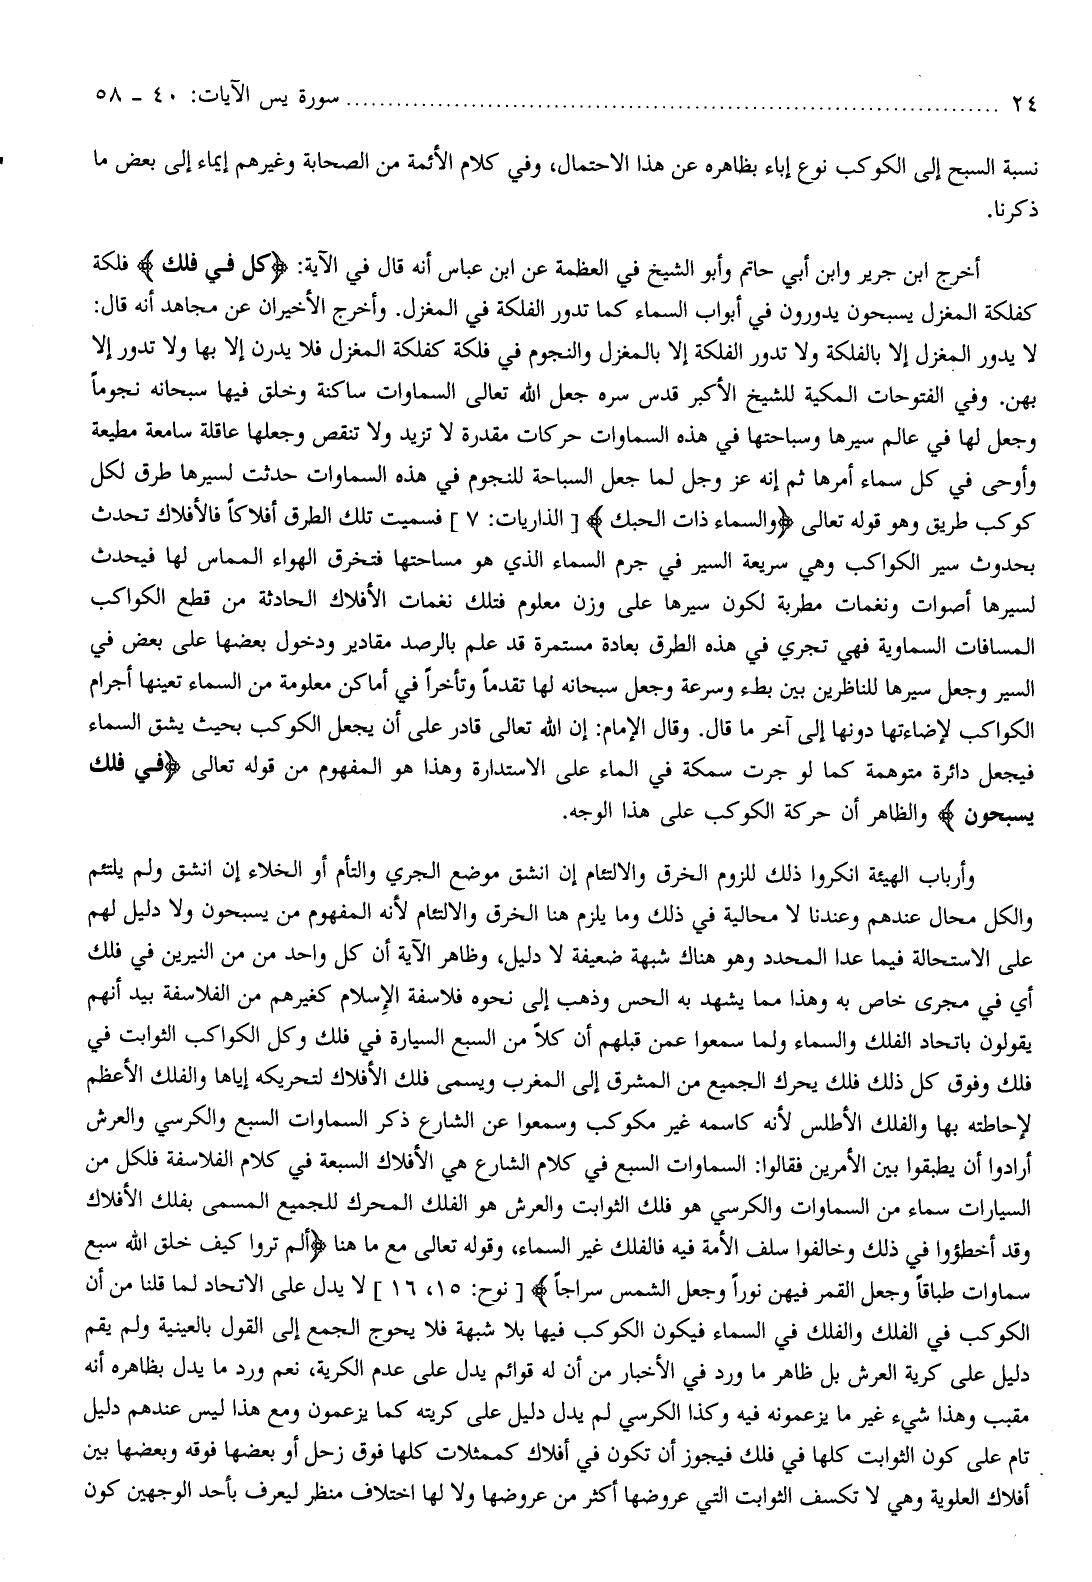 ٢٤ ........................................................................ سورة يس الآيات: ٤٠ ـ ٥٨
نسبة السبح إلى الكوكب نوع إباء بظاهره عن هذا الاحتمال، وفي كلام الأئمة من الصحابة وغيرهم إيماء إلى بعض ما
ذكرنا.
أخرج ابن جرير وابن أبي حاتم وأبو الشيخ في العظمة عن ابن عباس أنه قال في الآية: ﴿كل في فلك﴾ فلكة
كفلكة المغزل يسبحون يدورون في أبواب السماء كما تدور الفلكة في المغزل. وأخرج الأخيران عن مجاهد أنه قال:
لا يدور المغزل إلا بالفلكة ولا تدور الفلكة إلا بالمغزل والنجوم في فلكة كفلكة المغزل فلا يدرن إلا بها ولا تدور إلا
بهن. وفي الفتوحات المكية للشيخ الأكبر قدس سره جعل الله تعالى السماوات ساكنة وخلق فيها سبحانه نجوماً
وجعل لها في عالم سيرها وسباحتها في هذه السماوات حركات مقدرة لا تزيد ولا تنقص وجعلها عاقلة سامعة مطيعة
وأوحى في كل سماء أمرها ثم إنه عز وجل لما جعل السباحة للنجوم في هذه السماوات حدثت لسيرها طرق لكل
كوكب طريق وهو قوله تعالى ﴿والسماء ذات الحبك﴾ [ الذاريات: ٧ ] فسميت تلك الطرق أفلاكاً فالأفلاك تحدث
بحدوث سير الكواكب وهي سريعة السير في جرم السماء الذي هو مساحتها فتخرق الهواء المماس لها فيحدث
لسيرها أصوات ونغمات مطربة لكون سيرها على وزن معلوم فتلك نغمات الأفلاك الحادثة من قطع الكواكب
المسافات السماوية فهي تجري في هذه الطرق بعادة مستمرة قد علم بالرصد مقادير ودخول بعضها على بعض في
السير وجعل سيرها للناظرين بين بطء وسرعة وجعل سبحانه لها تقدماً وتأخراً في أماكن معلومة من السماء تعينها أجرام
الكواكب لإضاءتها دونها إلى آخر ما قال. وقال الإمام: إن الله تعالى قادر على أن يجعل الكوكب بحيث يشق السماء
فيجعل دائرة متوهمة كما لو جرت سمكة في الماء على الاستدارة وهذا هو المفهوم من قوله تعالى ﴿في فلك
يسبحون﴾ والظاهر أن حركة الكوكب على هذا الوجه.
وأرباب الهيئة انكروا ذلك للزوم الخرق والالتئام إن انشق موضع الجري والتأم أو الخلاء إن انشق ولم يلتئم
والكل محال عندهم وعندنا لا محالية في ذلك وما يلزم هنا الخرق والالتئام لأنه المفهوم من يسبحون ولا دليل لهم
على الاستحالة فيما عدا المحدد وهو هناك شبهة ضعيفة لا دليل، وظاهر الآية أن كل واحد من من النيرين في فلك
أي في مجرى خاص به وهذا مما يشهد به الحس وذهب إلى نحوه فلاسفة الإسلام كغيرهم من الفلاسفة بيد أنهم
يقولون باتحاد الفلك والسماء ولما سمعوا عمن قبلهم أن كلاً من السبع السيارة في فلك وكل الكواكب الثوابت في
فلك وفوق كل ذلك فلك يحرك الجميع من المشرق إلى المغرب ويسمى فلك الأفلاك لتحريكه إياها والفلك الأعظم
لإحاطته بها والفلك الأطلس لأنه كاسمه غير مكوكب وسمعوا عن الشارع ذكر السماوات السبع والكرسي والعرش
أرادوا أن يطبقوا بين الأمرين فقالوا: السماوات السبع في كلام الشارع هي الأفلاك السبعة في كلام الفلاسفة فلكل من
السيارات سماء من السماوات والكرسي هو فلك الثوابت والعرش هو الفلك المحرك للجميع المسمى بفلك الأفلاك
وقد أخطؤوا في ذلك وخالفوا سلف الأمة فيه فالفلك غير السماء، وقوله تعالى مع ما هنا ﴿ألم تروا كيف خلق الله سبع
سماوات طباقاً وجعل القمر فيهن نوراً وجعل الشمس سراجاً﴾ [ نوح: ١٥، ١٦ ] لا يدل على الاتحاد لما قلنا من أن
الكوكب في الفلك والفلك في السماء فيكون الكوكب فيها بلا شبهة فلا يحوج الجمع إلى القول بالعينية ولم يقم
دليل على كرية العرش بل ظاهر ما ورد في الأخبار من أن له قوائم يدل على عدم الكرية، نعم ورد ما يدل بظاهره أنه
مقبب وهذا شيء غير ما يزعمونه فيه وكذا الكرسي لم يدل دليل على كريته كما يزعمون ومع هذا ليس عندهم دليل
تام على كون الثوابت كلها في فلك فيجوز أن تكون في أفلاك كممثلات كلها فوق زحل أو بعضها فوقه وبعضها بين
أفلاك العلوية وهي لا تكسف الثوابت التي عروضها أكثر من عروضها ولا لها اختلاف منظر ليعرف بأحد الوجهين كون